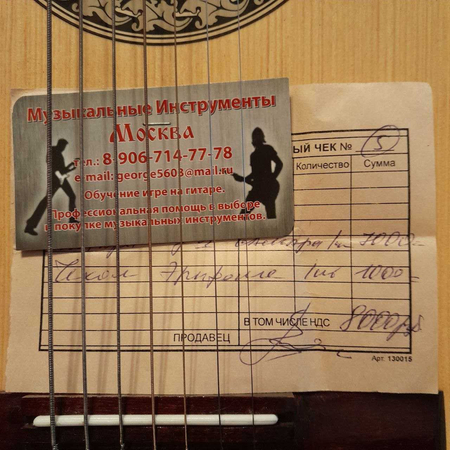 Музыкальные Инструменты
Москва
Тел.: 8 906-714-77-78
e-mail: george5603@mail.ru
Обучение игре на гитаре.
Профессиональная помощь в выборе
и покупке музыкальных инструментов.
ЫЙ ЧЕК № 5
Количество Сумма
7000-
Чехол 1шт 1000-
В ТОМ ЧИСЛЕ НДС 8000 руб
ПРОДАВЕЦ
Арт. 130015